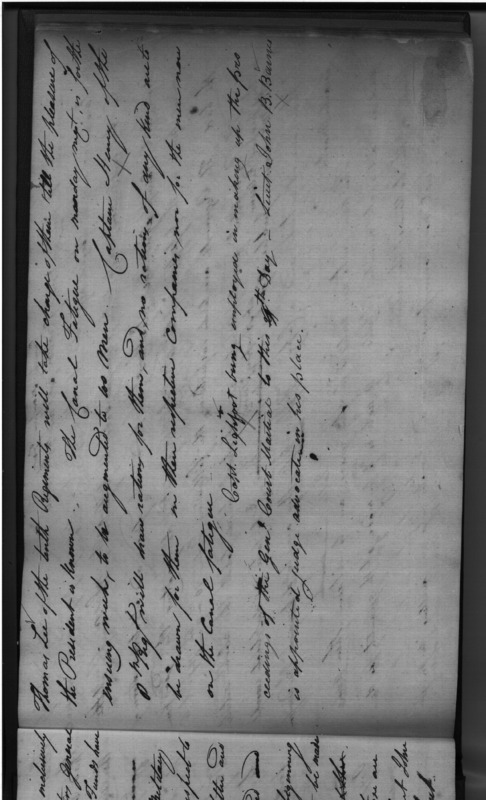 Thomas Lee of the tenth Regiments will take charge of their till the pleasure of
the President is known The Canal Fatigue on monday next is for the
ensuing week, to be augmented to 20 Men. Captain Henry of the
Regt. will draw rations for them, and no returns of any kind are to
be drawn for them in their respective Companies, nor for the men now
on the Canal fatigue
Capt. Lightfoot being employed in making up the pro
ceedings of the Genl. Court Martial to this Day - Lieut. John B. Barnes
is appointed judge advocate in his place.
respect to
of the
be made